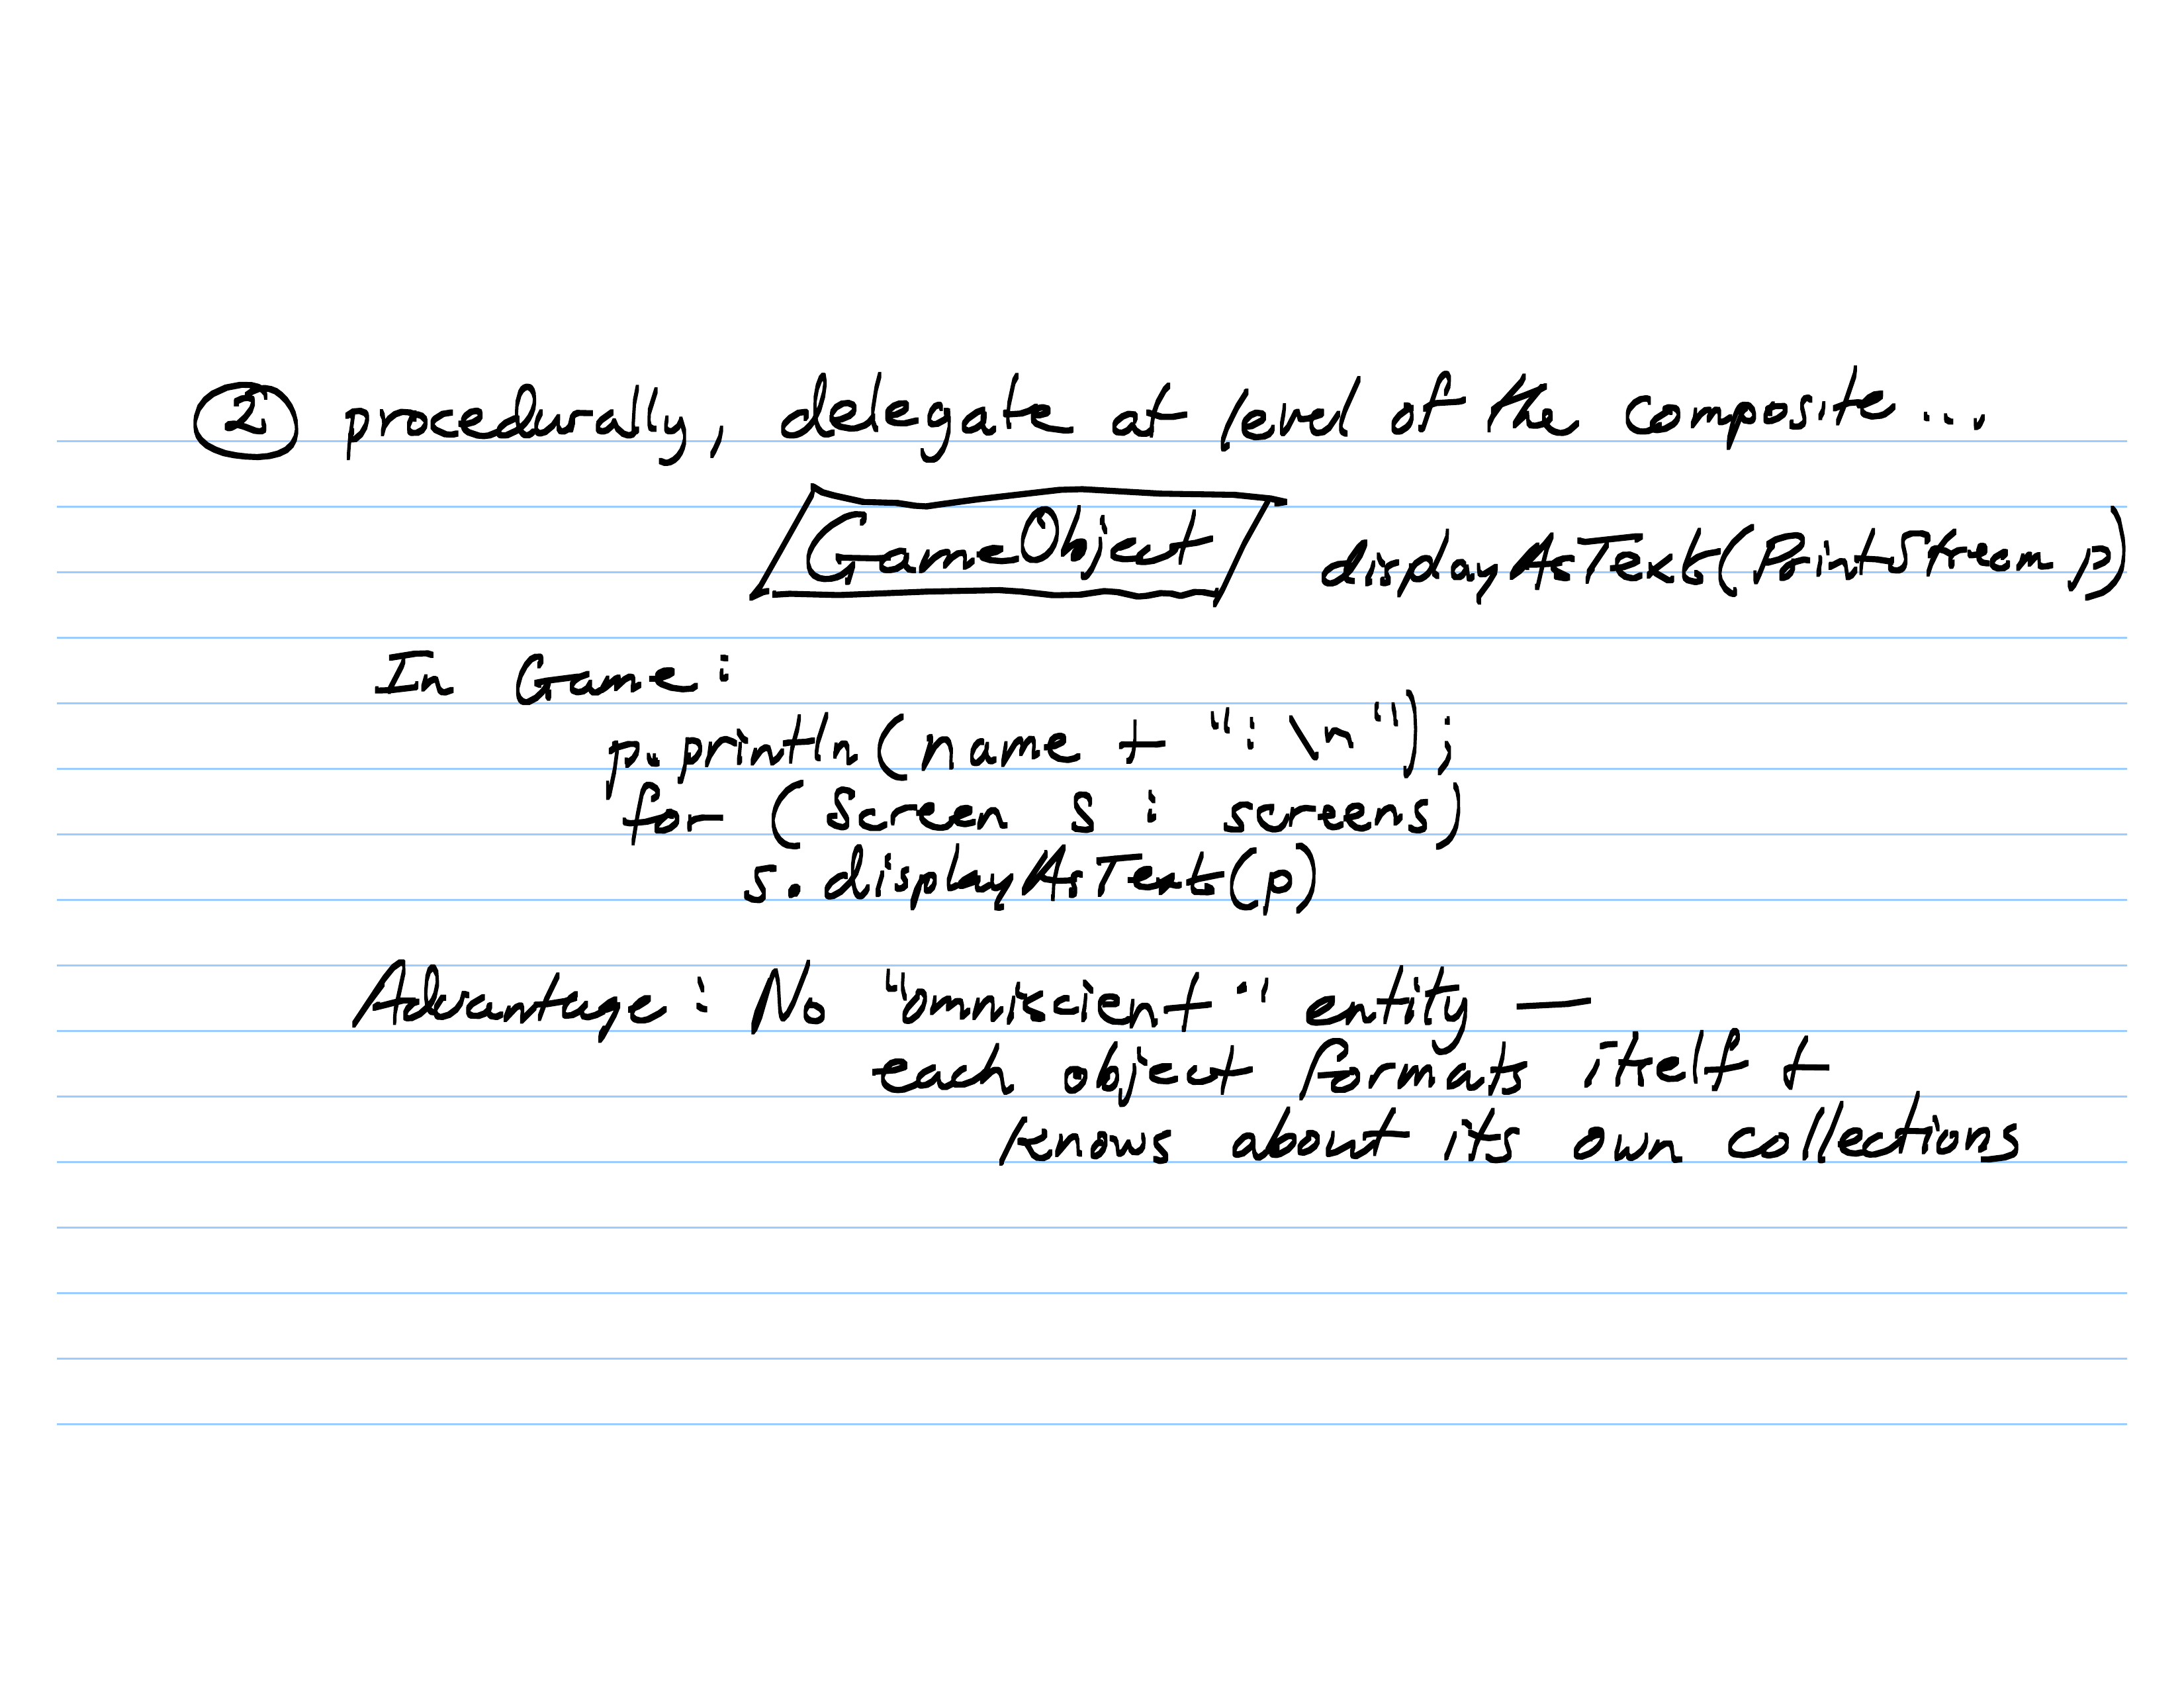 ② procedurally, delegate at level of the composite...
GameObject displayAsText(PrintStream p)
In Game:
p.println(name + ":\n");
for (Screen s : screens)
s.displayAsText(p)
Advantage: No "omniscient" entity —
each object formats itself +
knows about its own collections